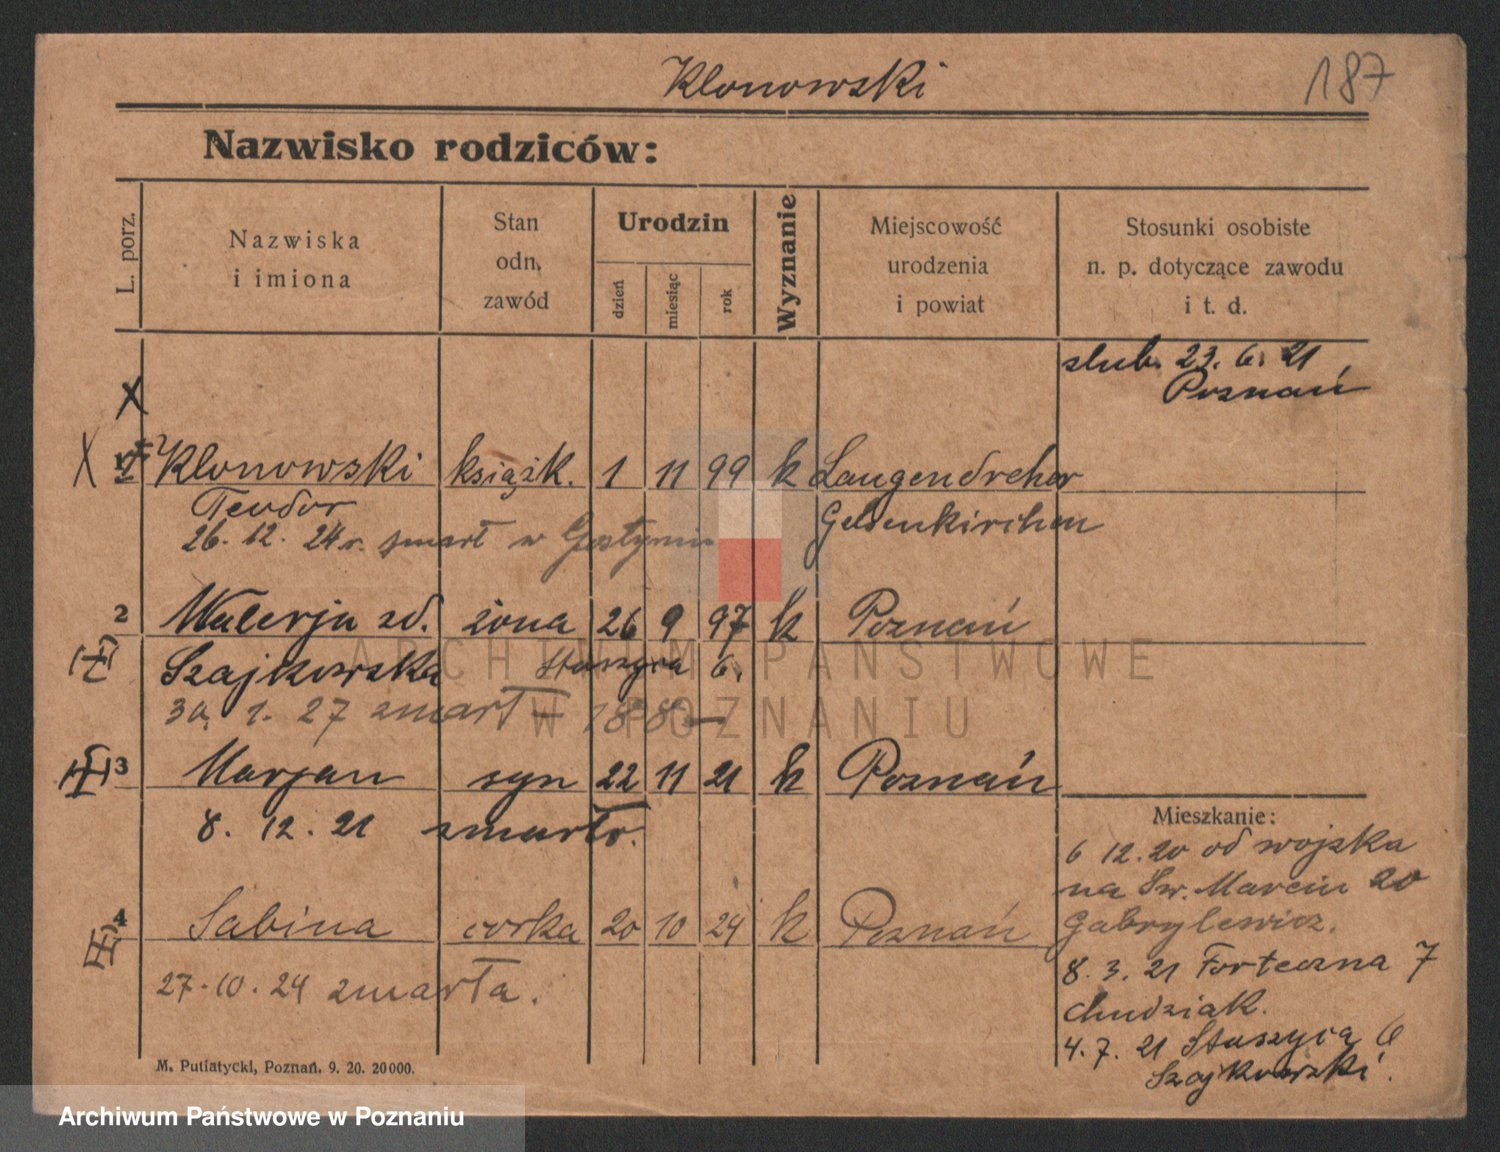 Klonowski
187
Nazwisko rodziców:
L. porz.
Nazwiska
i imiona
Stan
odn.
zawód
Urodzin
dzień
miesiąc
rok
Wyznanie
Miejscowość
urodzenia
i powiat
Stosunki osobiste
n. p. dotyczące zawodu
i t. d.
slub. 23. 6. 21
Poznań
X
X 1 Klonowski książk. 1 11 99 k Langendreher
Teodor Gelsenkirchen
26. 12. 24 r. zmarł w Gostyniu
2 Walerja zd. żona 26 9 97 k Poznań
Szajkowska Staszyca 6.
30. 1. 27 zmarł
3 Marjan syn 22 11 21 k Poznań
8. 12. 21 zmarł
4 Sabina corka 20 10 24 k Poznań
27. 10. 24 zmarła.
Mieszkanie:
6 12. 20 od wojska
na Św. Marcin 20
Gabrylewicz.
8. 3. 21 Forteczna 7
Chudziak.
4. 7. 21 Staszyca 6
Szajkowski.
M. Putiatycki, Poznań. 9. 20. 20000.
ARCHIWUM PAŃSTWOWE
W POZNANIU
Archiwum Państwowe w Poznaniu